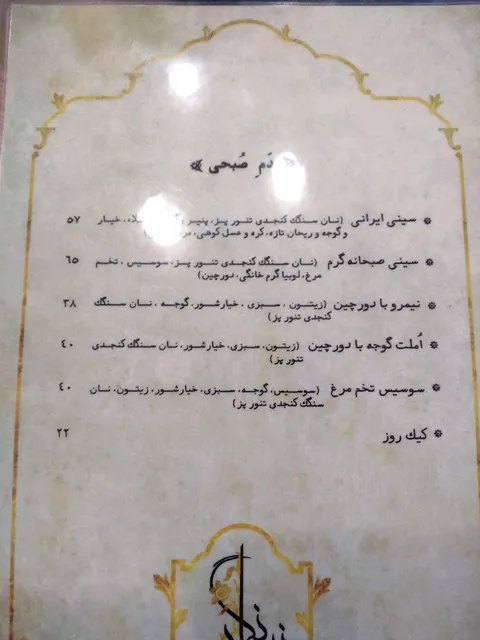 دَمِ صُبحی
سینی ایرانی (نان سنگک کنجدی تنور پز، پنیر خیار ۵۷
و گوجه و ریحان تازه، کره و عسل کوهی،
سینی صبحانه گرم (نان سنگک کنجدی تنورپز، سوسیس، تخم ۶۵
مرغ، لوبیا گرم خانگی، دورچین)
نیمرو با دورچین (زیتون، سبزی، خیارشور، گوجه، نان سنگک ۳۸
کنجدی تنور پز)
اُملت گوجه با دورچین (زیتون، سبزی، خیارشور، نان سنگک کنجدی ۴۰
تنور پز)
سوسیس تخم مرغ (سوسیس، گوجه، سبزی، خیارشور، زیتون، نان ۴۰
سنگک کنجدی تنور پز)
کیک روز ۲۲